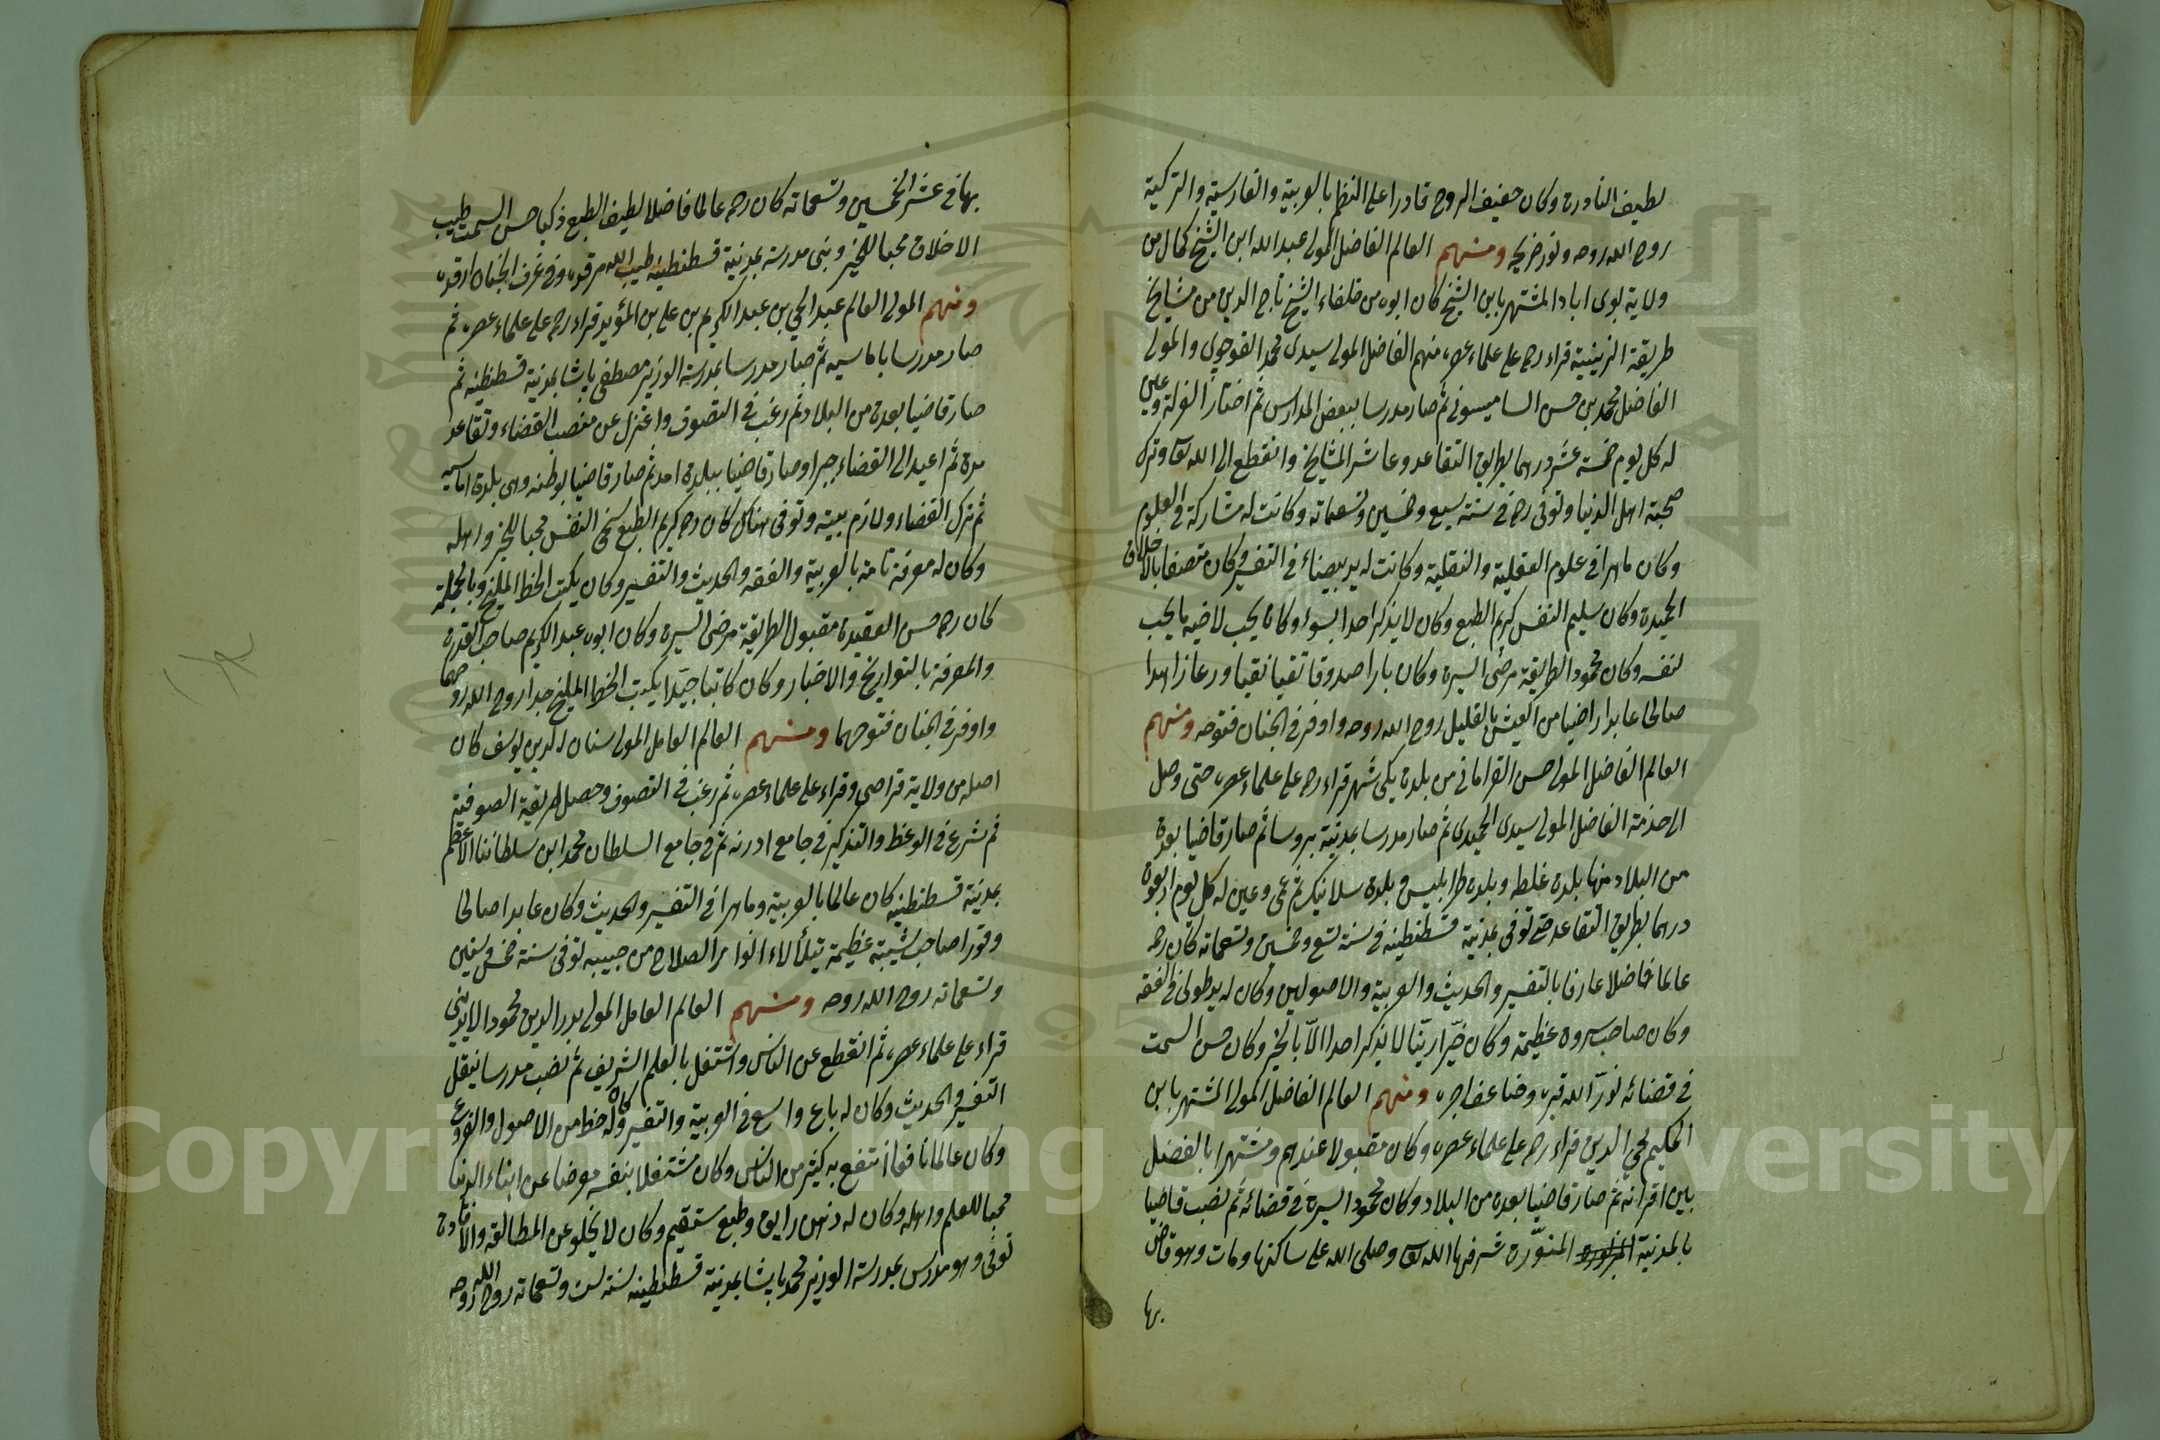 لطيف النادرة وكان خفيف الروح قادرا على النظم بالعربية والفارسية والتركية
روح الله روحه ونور ضريحه ومنهم العالم الفاضل المولى عبد الله ابن الشيخ كمال من
ولاية بولى اباد المشتهر بابن الشيخ كان ابوه من خلفاء الشيخ تاج الدين من مشايخ
طريقة الزينية قراء رحه على علماء عصره منهم الفاضل المولى سيدى محمد القوجوى والمولى
الفاضل محمد بن حسن الساميسونى ثم صار مدرسا ببعض المدارس ثم اختار العزلة وعين
له كل يوم خمسة عشر درهما بطريق التقاعد وعاشر المشايخ وانقطع الى الله تع وترك
صحبة اهل الدنيا وتوفى رح فى سنة سبع وخمسين وتسعمائه وكانت له مشاركة فى العلوم
وكان ماهرا فى علوم العقلية والنقلية وكانت له يد بيضاء فى التفسير وكان متصفا بالاخلاق
الحميدة وكان سليم النفس كريم الطبع وكان لا يذكر احدا بسوء وكان يحب لاخيه ما يحب
لنفسه وكان محمود الطريقة مرضى السيرة وكان بارا صدوقا تقيا نقيا ورعا زاهدا
صالحا عابدا راضيا من العيش بالقليل روح الله روحه واوفر فى الجنان فتوحه ومنهم
العالم الفاضل المولى حسن القرامانى من بلدة يكى شهر قراء رحه على علماء عصره حتى وصل
الى خدمة الفاضل المولى سيدى الحميدى ثم صار مدرسا بمدينة بروسا ثم صار قاضيا بعدة
من البلاد منها بلدة غلطه وبلدة طرابليس وبلدة سلانيك ثم عمى وعين له كل يوم اربعون
درهما بطريق التقاعد حتى توفى بمدينة قسطنطينه فى سنة تسع وخمسين وتسعمائه كان رحه
عالما فاضلا عارفا بالتفسير والحديث والعربية والاصولين وكان له يد طولى فى الفقه
وكان صاحب ثروة عظيمة وكان خيرا دينا لا يذكر احدا الا بالخير وكان حسن السمت
فى قضائه نور الله قبره وضاعف اجره ومنهم العالم الفاضل المولى المشتهر بابن
الحكيم محيى الدين قراء رحه على علماء عصره وكان مقبولا عندهم ومشتهرا بالفضل
بين اقرانه ثم صار قاضيا بعدة من البلاد وكان محمود السيرة فى قضائه ثم نصب قاضيا
بالمدينة المنورة شرفها الله تع وصلى الله على ساكنها ومات وهو قاض
بها
بها فى عشر الخمسين وتسعمائه كان رحه عالما فاضلا لطيف الطبع ذكيا حسن السمت طيب
الاخلاق محبا للخير وبنى مدرسة بمدينة قسطنطينه طيب الله مرقده وفى غرف الجنان ارقده
ومنهم المولى العالم عبد الحى بن عبد الكريم بن على بن المؤيد قراء رحه على علماء عصره ثم
صار مدرسا باماسيه ثم صار مدرسا بمدرسة الوزير مصطفى باشا بمدينة قسطنطينه ثم
صار قاضيا بعدة من البلاد ثم رغب فى التصوف واعتزل عن منصب القضاء وتقاعد
مدة ثم اعيد الى القضاء جبرا وصار قاضيا ببلدة امد ثم صار قاضيا بوطنه وهى بلدة اماسيه
ثم ترك القضاء ولازم بيته وتوفى هناك كان رحه كريم الطبع سخى النفس محبا للخير واهله
وكان له معرفة تامة بالعربية والفقه والحديث والتفسير وكان يكتب الخط المليح وبالجملة
كان رحه حسن العقيدة مقبول الطريقة مرضى السيرة وكان ابوه عبد الكريم صاحب القدرة
والمعرفة بالتواريخ والاخبار وكان كاتبا جيدا يكتب الخط المليح جدا روح الله روحهما
واوفر فى الجنان فتوحهما ومنهم العالم العامل المولى سنان الدين يوسف كان
اصله من ولاية قراصى وقراء على علماء عصره ثم رغب فى التصوف وحصل طريقة الصوفية
ثم شرع فى الوعظ والتذكير فى جامع ادرنه ثم فى جامع السلطان محمد ابن سلطاننا الاعظم
بمدينة قسطنطينه كان عالما بالعربية وماهرا فى التفسير والحديث وكان عابدا صالحا
وقورا صاحب شيبة عظيمة يتلألاء انوار الصلاح من جبينه توفى سنة خمس وستين
وتسعمائه روح الله روحه ومنهم العالم العامل المولى بدر الدين محمود الايدينى
قراء على علماء عصره ثم انقطع عن الناس واشتغل بالعلم الشريف ثم نصب مدرسا لنقل
التفسير والحديث وكان له باع واسع فى العربية والتفسير وكان له حظ من الاصول والفروع
وكان عالما نافعا انتفع به كثير من الناس وكان مشتغلا بنفسه معرضا عن ابناء الدنيا
محبا للعلم واهله وكان له ذهن رايق وطبع مستقيم وكان لا يخلو عن المطالعة والافادة
توفى وهو مدرس بمدرسة الوزير محمد باشا بمدينة قسطنطينه سنة ست وتسعمائه روح الله روحه
Copyright © King Saud University